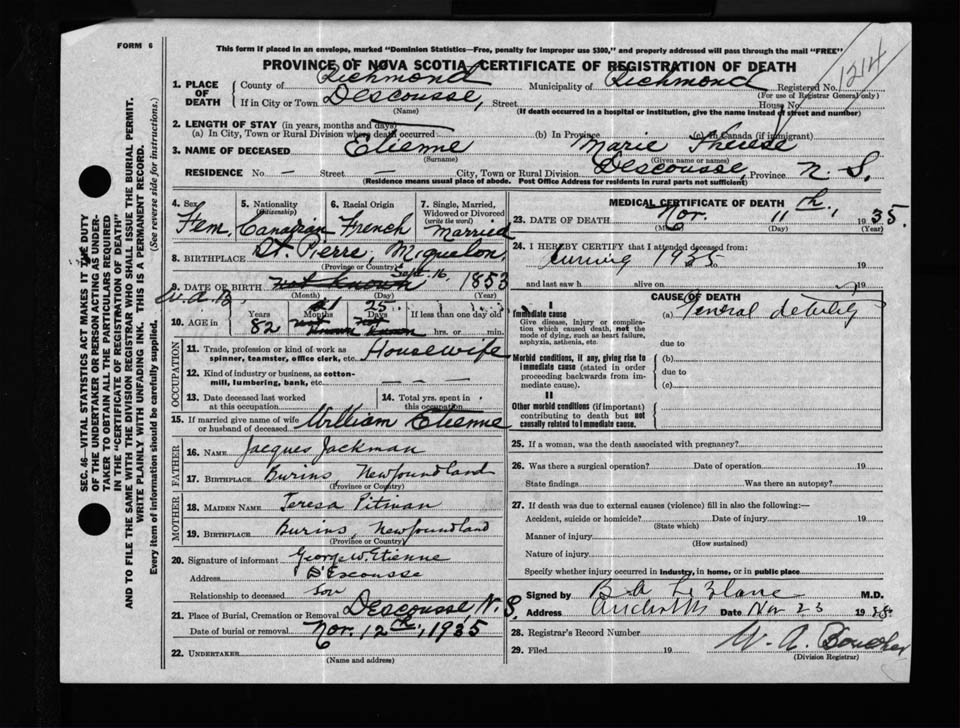 FORM 6
This form if placed in an envelope, marked "Dominion Statistics—Free, penalty for improper use $300," and properly addressed will pass through the mail "FREE"
PROVINCE OF NOVA SCOTIA—CERTIFICATE OF REGISTRATION OF DEATH
1214
1. PLACE OF DEATH County of Richmond Municipality of Richmond Registered No.
(For use of Registrar General only)
If in City or Town Descousse, Street House No.
(Name) (If death occurred in a hospital or institution, give the name instead of street and number)
2. LENGTH OF STAY (in years, months and days)
(a) In City, Town or Rural Division where death occurred (b) In Province (c) In Canada (if immigrant)
3. NAME OF DECEASED Etienne Marie Therese
(Surname) (Given name or names)
RESIDENCE No — Street — City, Town or Rural Division Descousse, Province N. S.
(Residence means usual place of abode. Post Office Address for residents in rural parts not sufficient)
4. Sex 5. Nationality (Citizenship) 6. Racial Origin 7. Single, Married, Widowed or Divorced (write the word)
Fem. Canadian French Married
8. BIRTHPLACE St. Pierre, Miquelon,
(Province or Country)
9. DATE OF BIRTH not known Sept. 16, 1853
(Month) (Day) (Year)
W.A.B.
10. AGE in Years Months Days If less than one day old
82 1 25 hrs. or min.
not known not known
OCCUPATION
11. Trade, profession or kind of work as spinner, teamster, office clerk, etc. Housewife
12. Kind of industry or business, as cotton-mill, lumbering, bank, etc. — — —
13. Date deceased last worked at this occupation
14. Total yrs. spent in this occupation
15. If married give name of wife or husband of deceased William Etienne
FATHER
16. NAME Jacques Jackman
17. BIRTHPLACE Burins, Newfoundland
(Province or Country)
MOTHER
18. MAIDEN NAME Teresa Pitman
19. BIRTHPLACE Burins, Newfoundland
(Province or Country)
20. Signature of informant George W. Etienne
Address D'Escousse
Relationship to deceased son
21. Place of Burial, Cremation or Removal Descousse, N. S.
Date of burial or removal Nov. 12th, 1935
22. UNDERTAKER
(Name and address)
MEDICAL CERTIFICATE OF DEATH
23. DATE OF DEATH Nov. 11th, 1935.
(Month) (Day) (Year)
24. I HEREBY CERTIFY that I attended deceased from:
during 1935 to
and last saw h alive on 19
CAUSE OF DEATH
I
Immediate cause (a) General debility
Give disease, injury or complication which caused death, not the mode of dying, such as heart failure, asphyxia, asthenia, etc.
due to
Morbid conditions, if any, giving rise to immediate cause (stated in order proceeding backwards from immediate cause).
(b)
due to
(c)
II
Other morbid conditions (if important) contributing to death but not causally related to immediate cause.
25. If a woman, was the death associated with pregnancy?
26. Was there a surgical operation? Date of operation 19
State findings Was there an autopsy?
27. If death was due to external causes (violence) fill in also the following:—
Accident, suicide or homicide? Date of injury 19
(State which)
Manner of injury
(How sustained)
Nature of injury
Specify whether injury occurred in industry, in home, or in public place
Signed by B A LeBlanc M.D.
Address Date Nov 23 19
28. Registrar's Record Number
29. Filed 19 W. A. Boucher
(Division Registrar)
SEC. 46—VITAL STATISTICS ACT MAKES IT THE DUTY
OF THE UNDERTAKER OR PERSON ACTING AS UNDER-
TAKER TO OBTAIN ALL THE PARTICULARS REQUIRED
IN THE "CERTIFICATE OF REGISTRATION OF DEATH"
AND TO FILE THE SAME WITH THE DIVISION REGISTRAR WHO SHALL ISSUE THE BURIAL PERMIT.
WRITE PLAINLY WITH UNFADING INK. THIS IS A PERMANENT RECORD.
Every item of information should be carefully supplied. (See reverse side for instructions.)